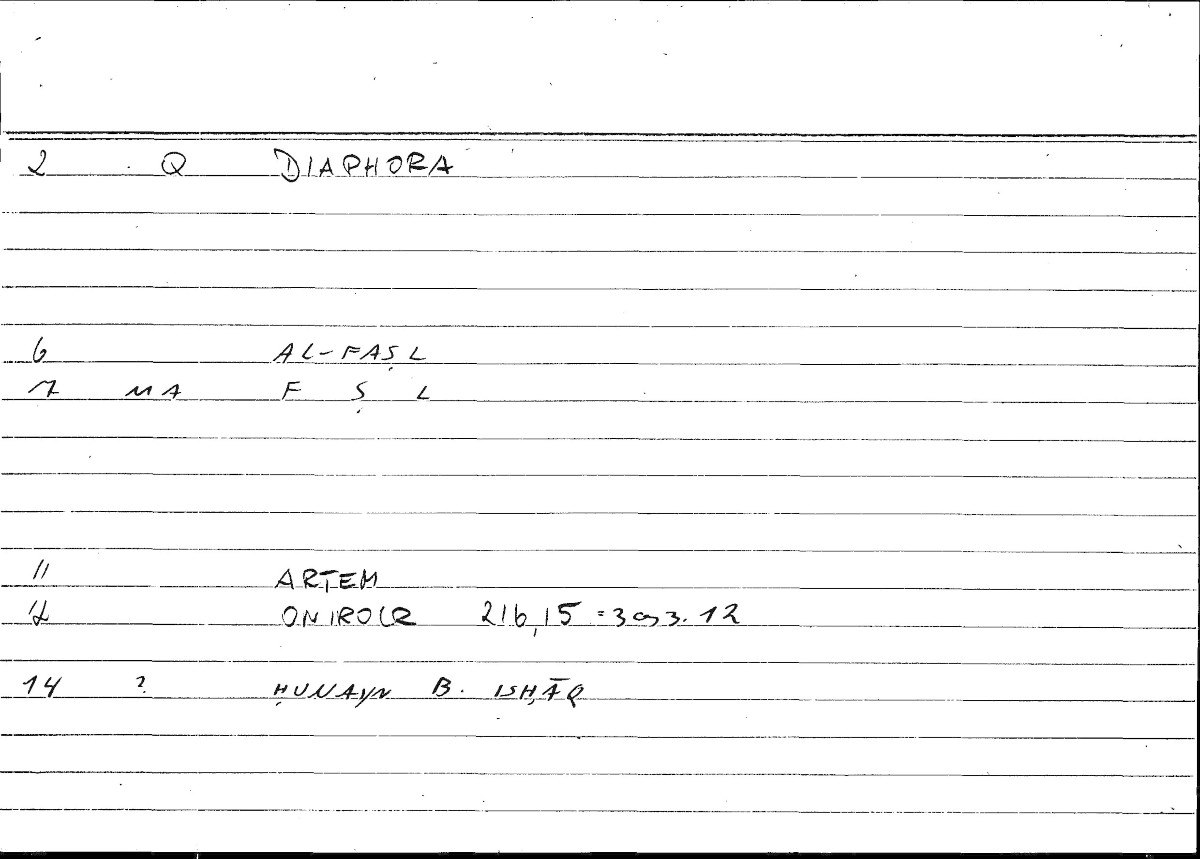 2 Q DIAPHORA
6 AL-FAṢL
7 MA F Ṣ L
11 ARTEM
12 ONIROCR 216,15 = 303.12
14 ? ḤUNAYN B. ISḤĀQ